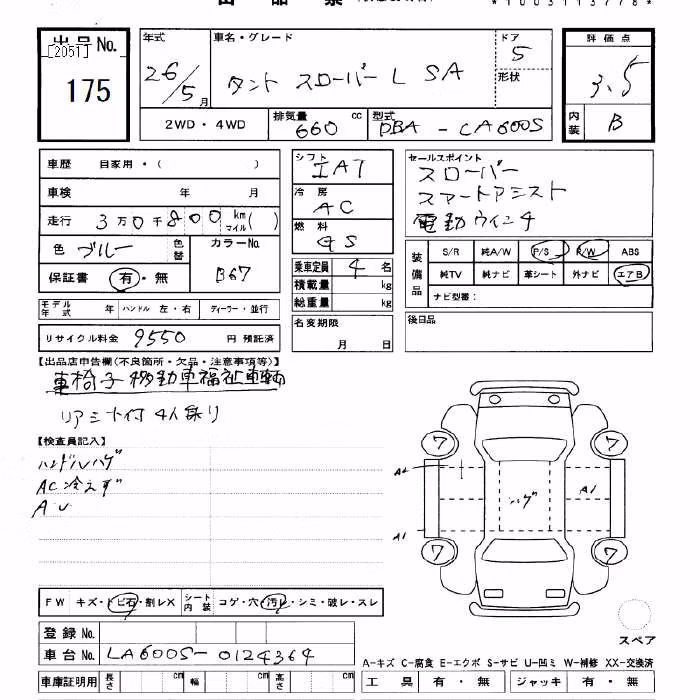 出品票
*1003113778*
出品No. 年式 車名・グレード ドア 評価点
[2051] 26/5月 タント スローパーL SA 5 3.5
175 形状
2WD・4WD 排気量 660 cc 型式 DBA-CA600S 内装 B
車歴 自家用・( ) シフト IAT セールスポイント
車検 年 月 冷房 AC スローパー
走行 3万0千800km マイル( ) スマートアシスト
色 ブルー 色替 カラーNo. B67 燃料 GS 電動ウインチ
保証書 有・無 乗車定員 4名 装備品 S/R 純A/W P/S P/W ABS
積載量 kg 純TV 純ナビ 革シート 外ナビ エアB
モデル年式 年 ハンドル 左・右 ディーラー・並行 総重量 kg ナビ型番:
リサイクル料金 9550 円 預託済 名変期限 月 日 後日品
【出品店申告欄(不良箇所・欠品・注意事項等)】
車椅子移動車福祉車輌
リアシート付 4人乗り
【検査員記入】
ハンドルハゲ
AC冷えず
AU
7 7
A2 ハゲ A1
A1
7 7
FW キズ・トビ石・割レX シート内装 コゲ・穴・汚レ・シミ・破レ・スレ
登録No.
車台No. LA600S-0124364
スペア
A-キズ C-腐食 E-エクボ S-サビ U-凹ミ W-補修 XX-交換済
車庫証明用 長さ cm 幅 cm 高さ cm 工具 有・無 ジャッキ 有・無